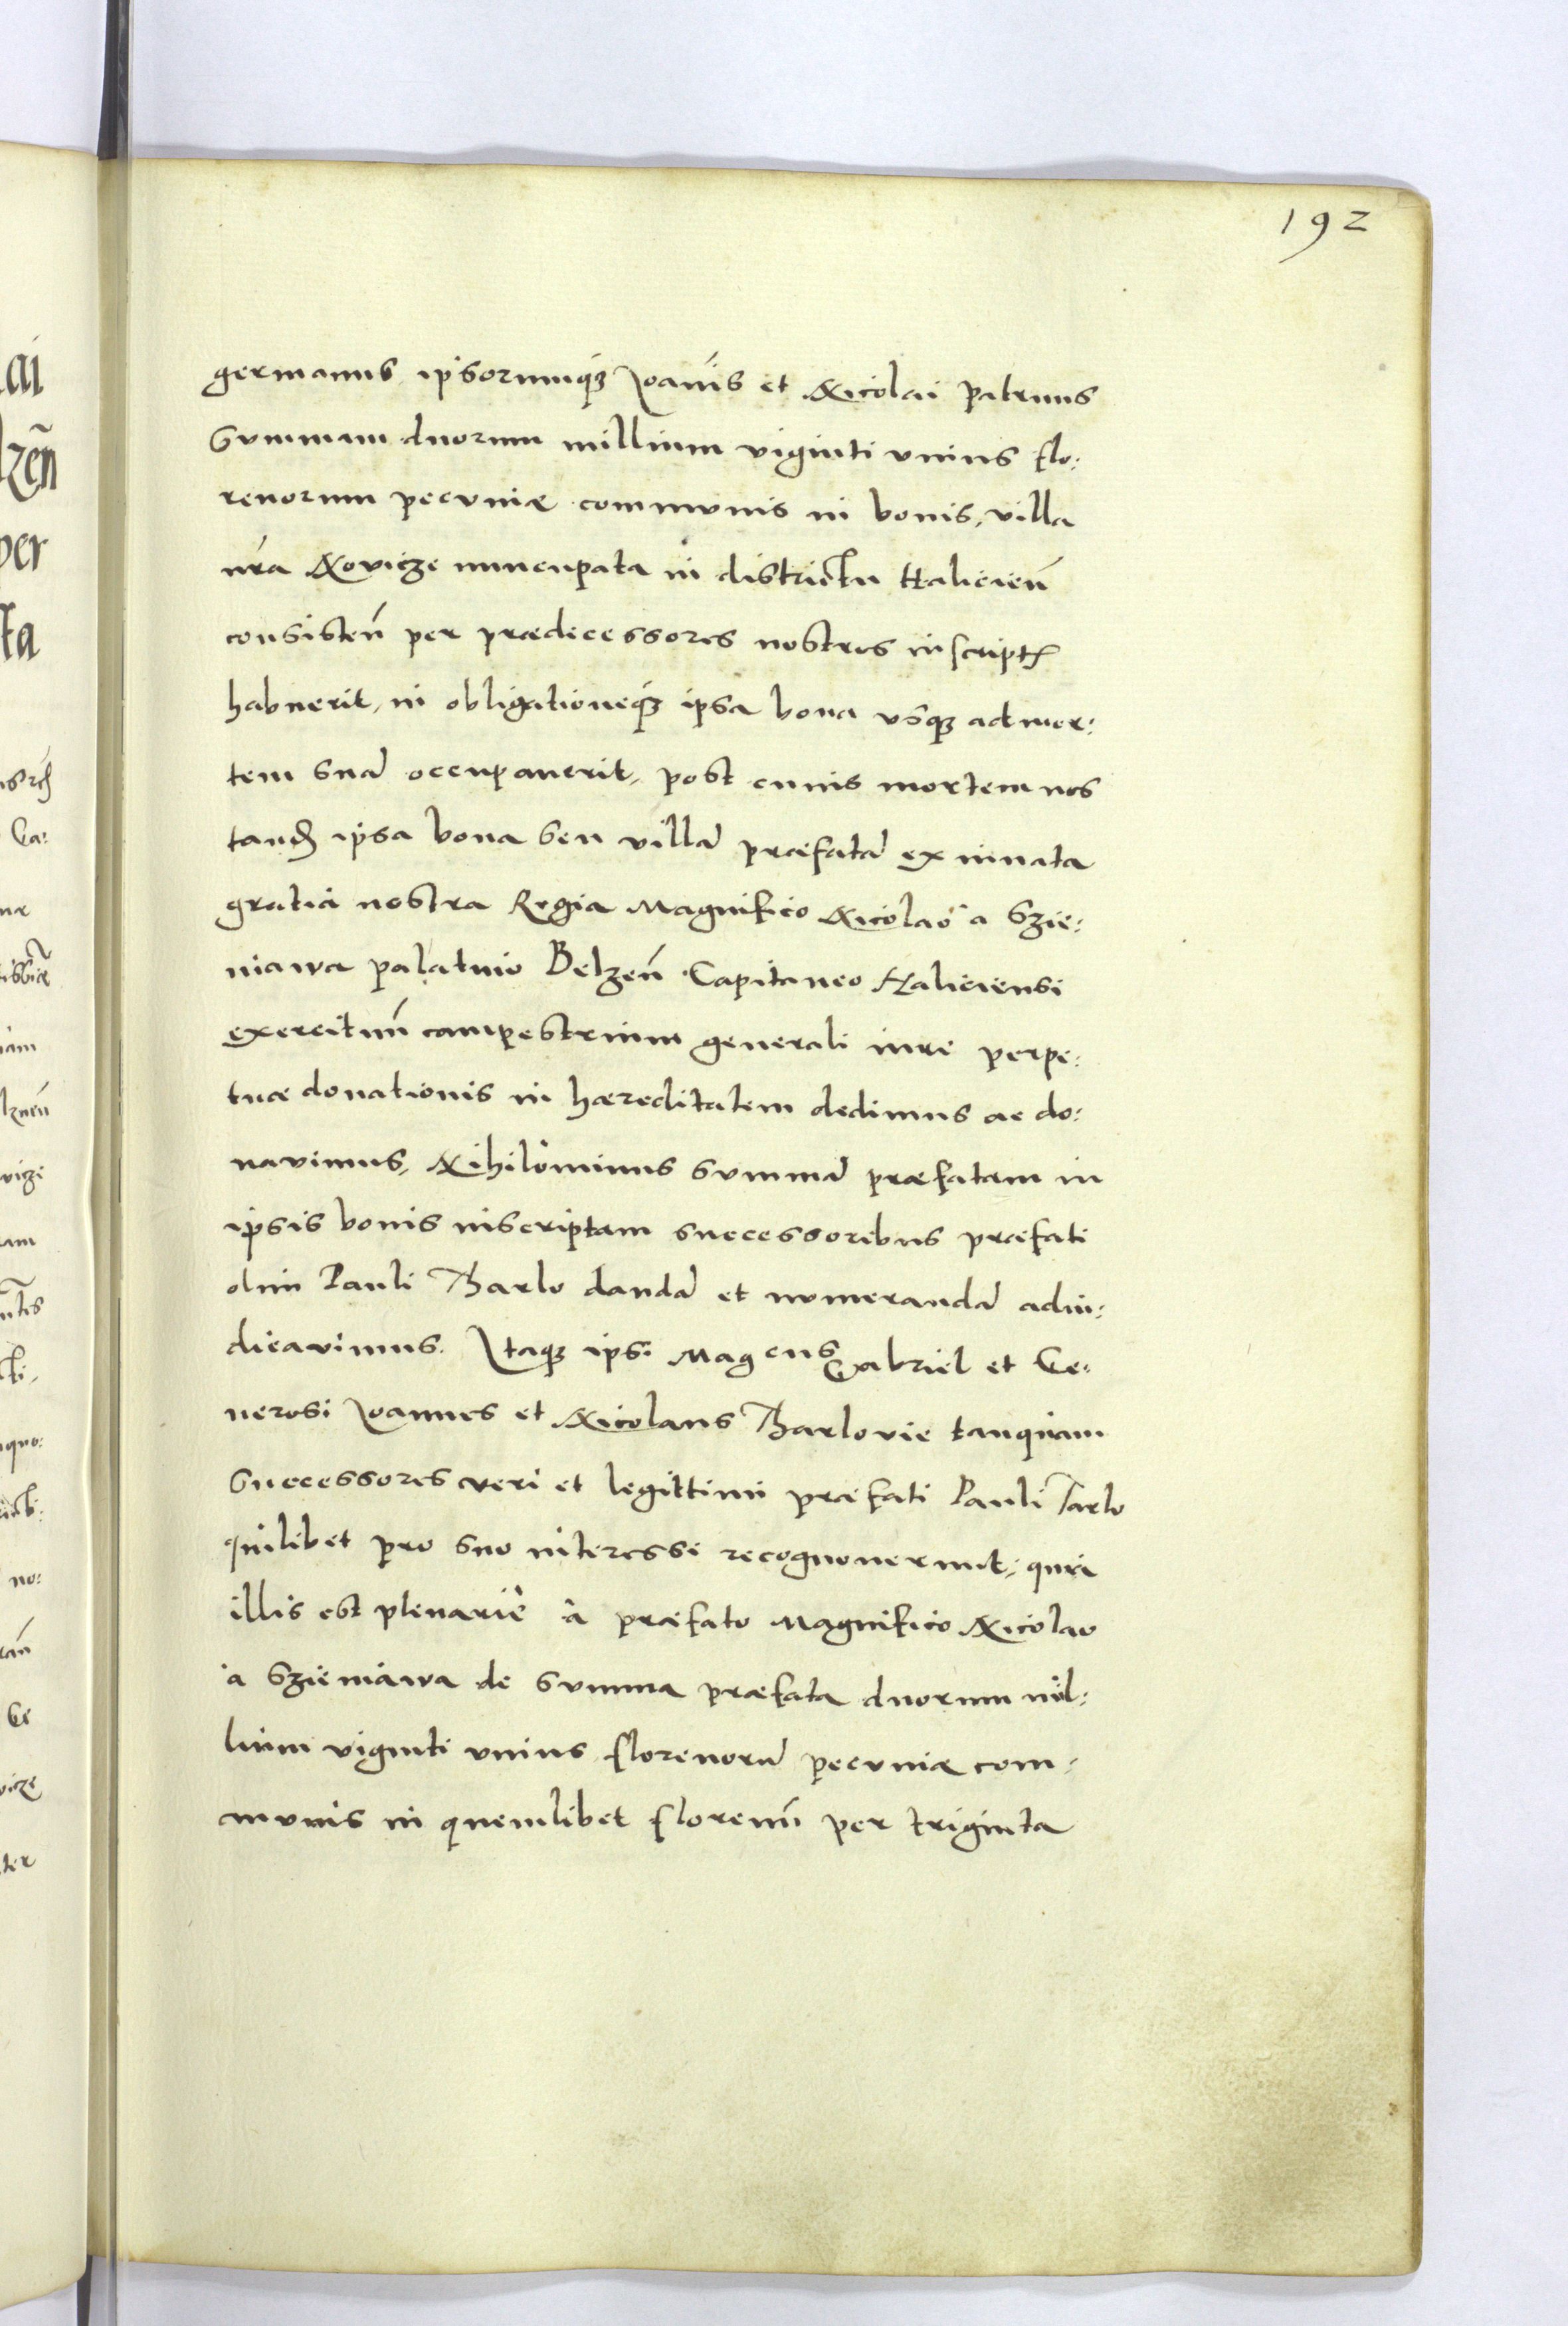 192
germanus ipsorumq₃ Ioañis et Nicolai patruus
summam duorum millium viginti unius flo:
renorum pecuniæ communis in bonis, villa
nr̃a Novicze nuncupata in districtu Halicieñ
consisteñ per prædecessores nostros inscript
habuerit, in obligationeq₃ ipsa bona usq₃ ad mor:
tem suã occupauerit, post cuius mortem nos
tandẽ ipsa bona seu villã præfatã ex innata
gratia nostra Regia Magnifico Nicolao a Szie:
niawa palatino Belzeñ Capitaneo Haliciensi
exercituũ campestrium generali iure perpe:
tuæ donationis in hæreditatem dedimus ac do:
navimus, Nihilominus summã præfatam in
ipsis bonis inscriptam successoribus præfati
olim Pauli Tharlo dandã et numerandã adiu:
dicavimus. Itaq₃ ipsi Mag cus Gabriel et Ge:
nerosi Ioannes et Nicolaus Tharlovie tanquam
successores veri et legittimi præfati Pauli Tarlo
quilibet pro suo interessi recognouerunt, quia
illis est plenarie à præfato Magnifico Nicolao
a Szieniawa de summa præfata duorum mil:
lium viginti unius florenorũ pecuniæ com:
munis in quemlibet florenũ per triginta
ai
lzeñ
per
ta
Ca:
iam
lzneñ
vizi
am
cti,
quo:
no:
Ge
vicze
ter